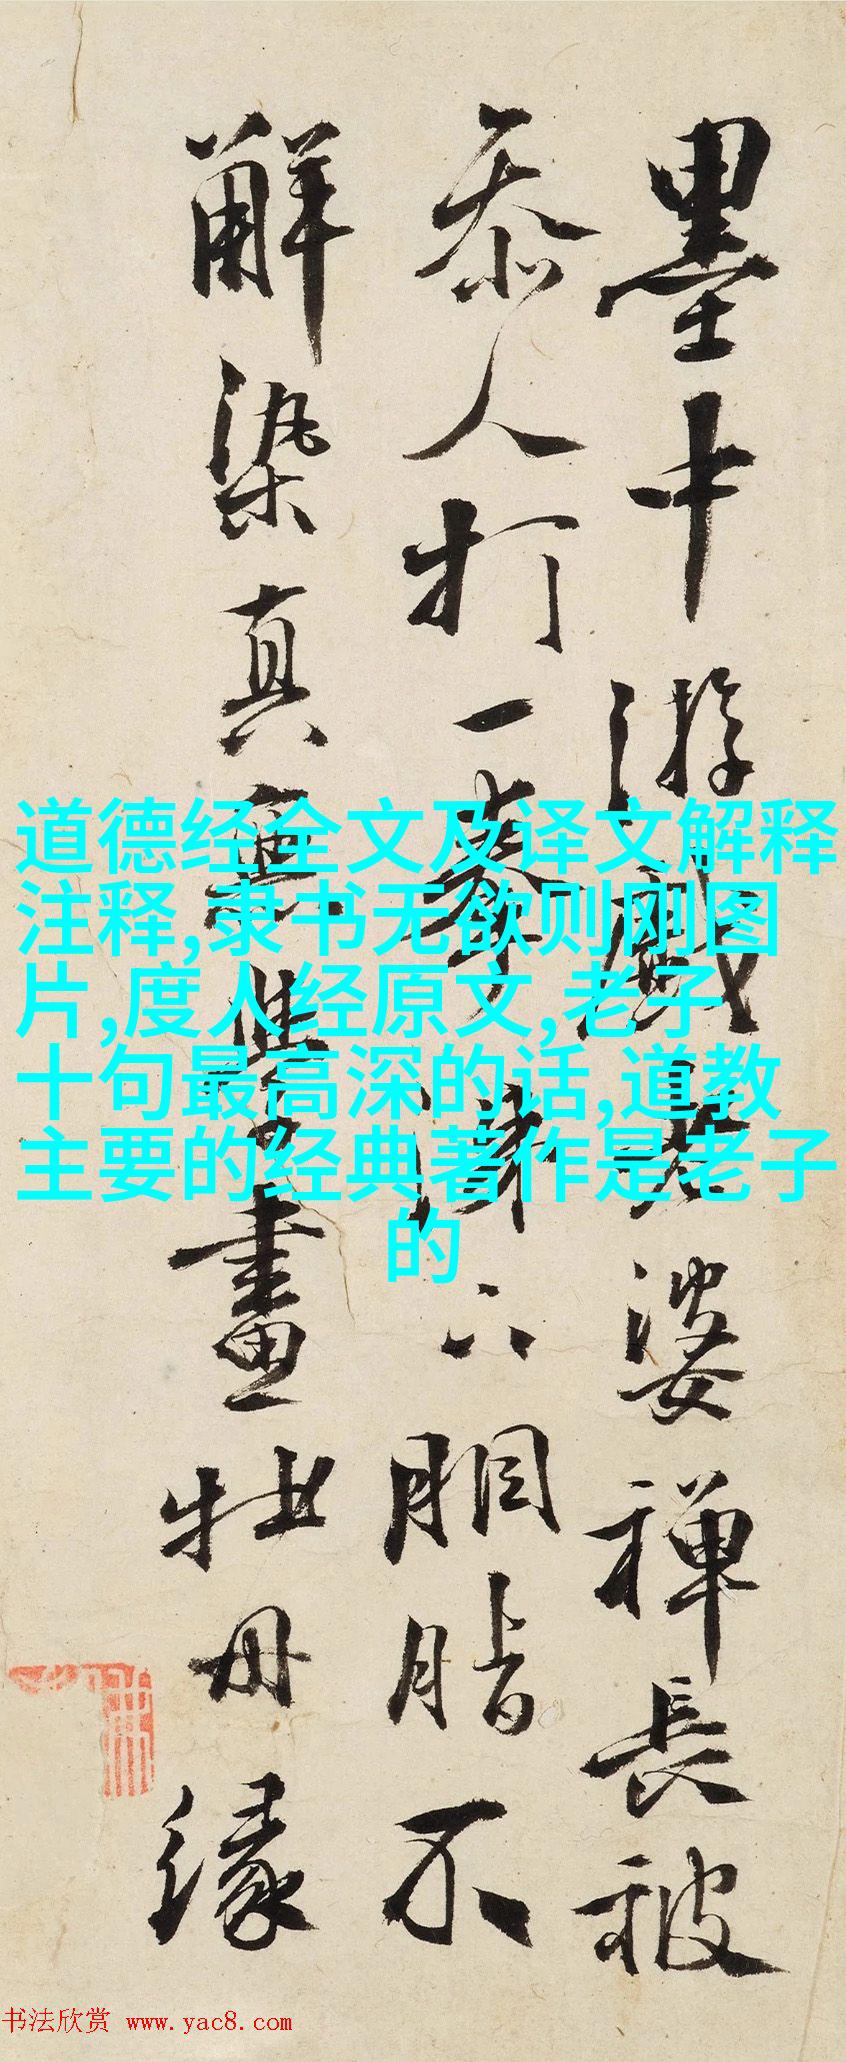 墨中游戲老婆禪長被
參人打一拳下胭脂不
觧染真無畫牡丹緣
道德经全文及译文解释
注释,隶书无欲则刚图
片,度人经原文,老子
十句最高深的话,道教
主要的经典著作是老子
的
书法欣赏 www.yac8.com